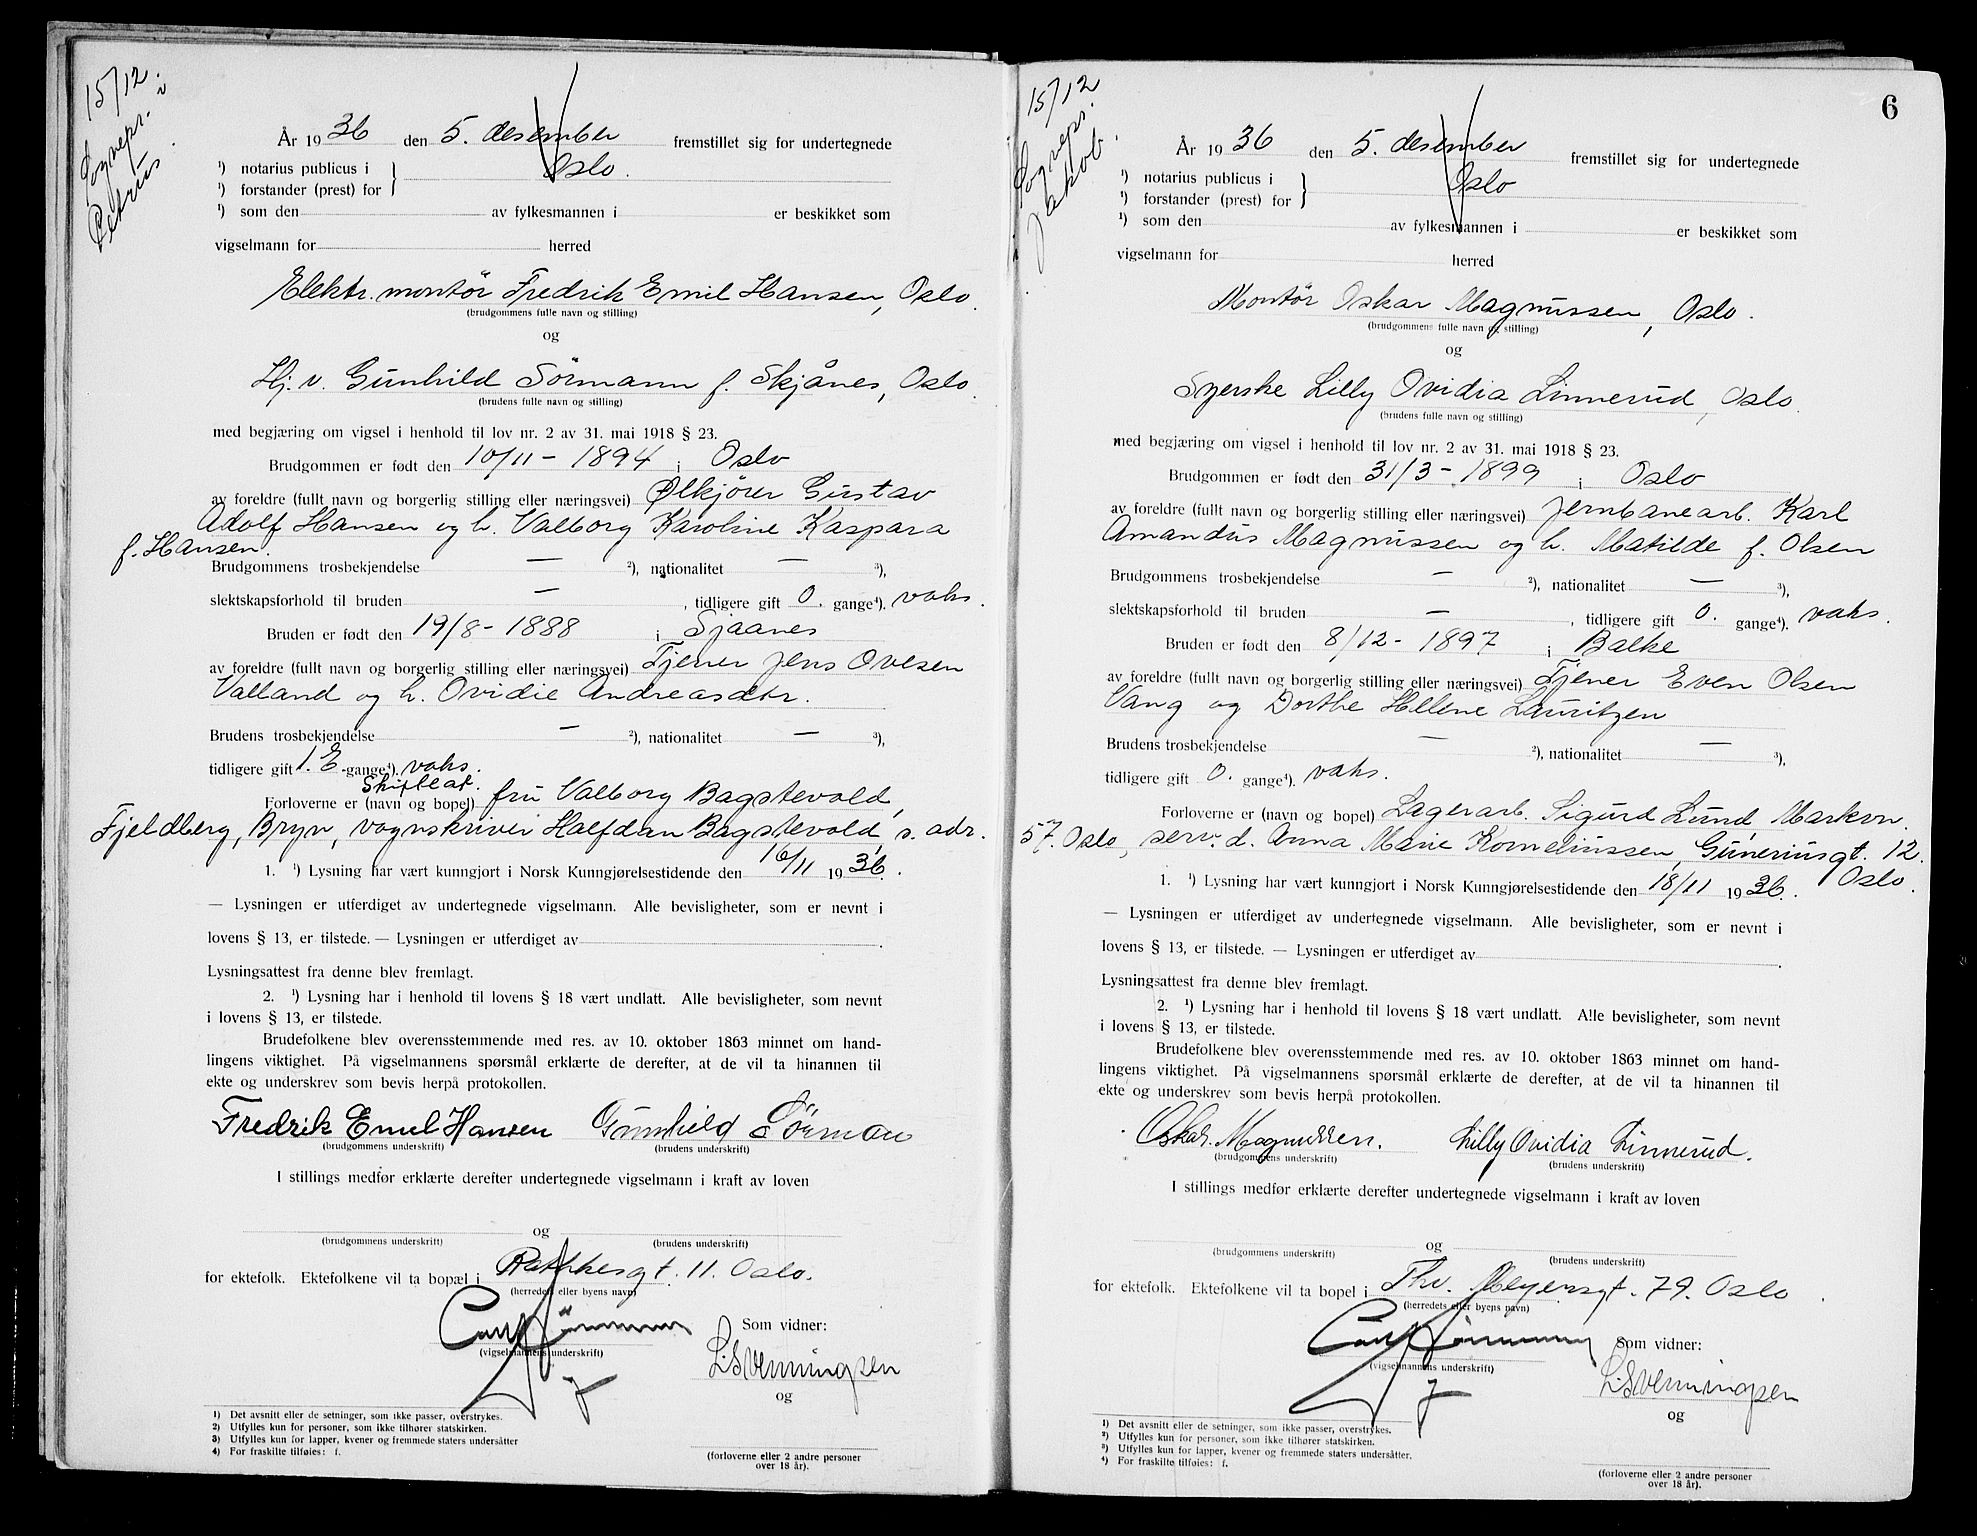 15/12.
Sognepr. i
Petrus
År 1936 den 5. desember fremstillet sig for undertegnede
¹) notarius publicus i
Oslo.
¹) forstander (prest) for
¹) som den av fylkesmannen i er beskikket som
vigselmann for herred
Elektr. montör Fredrik Emil Hansen, Oslo.
(brudgommens fulle navn og stilling)
og
Hj. v. Gunhild Sörmann f. Skjånes, Oslo.
(brudens fulle navn og stilling)
med begjæring om vigsel i henhold til lov nr. 2 av 31. mai 1918 § 23.
Brudgommen er født den 10/11 - 1894 i Oslo
av foreldre (fullt navn og borgerlig stilling eller næringsvei) Ølkjører Gustav
Adolf Hansen og h. Valborg Karoline Kaspara
f. Hansen.
Brudgommens trosbekjendelse — ²), nationalitet — ³),
slektskapsforhold til bruden — , tidligere gift 0. gange⁴). vaks.
Bruden er født den 19/8 - 1888 i Sjaanes
av foreldre (fullt navn og borgerlig stilling eller næringsvei) Tjener Jens Ovesen
Valland og h. Ovidie Andreasdtr.
Brudens trosbekjendelse — ²), nationalitet — ³),
tidligere gift 1. E gange⁴). vaks.
Skifteat.
Forloverne er (navn og bopel) fru Valborg Bagstevold,
Fjeldberg, Bryn, vognskriver Halfdan Bagstevold, s. adr.
1. ¹) Lysning har vært kunngjort i Norsk Kunngjørelsestidende den 16/11 1936.
— Lysningen er utferdiget av undertegnede vigselmann. Alle bevisligheter, som er nevnt i
lovens § 13, er tilstede. — Lysningen er utferdiget av
Lysningsattest fra denne blev fremlagt.
2. ¹) Lysning har i henhold til lovens § 18 vært undlatt. Alle bevisligheter, som nevnt
i lovens § 13, er tilstede.
Brudefolkene blev overensstemmende med res. av 10. oktober 1863 minnet om hand-
lingens viktighet. På vigselmannens spørsmål erklærte de derefter, at de vil ta hinannen til
ekte og underskrev som bevis herpå protokollen.
Fredrik Emil Hansen Gunhild Sörman
(brudgommens underskrift) (brudens underskrift)
I stillings medfør erklærte derefter undertegnede vigselmann i kraft av loven
og
(brudgommens underskrift) (brudens underskrift)
for ektefolk. Ektefolkene vil ta bopæl i Rathkesgt. 11. Oslo.
(herredets eller byens navn)
Som vidner:
(vigselmannens underskrift)
L. Svenningsen
og
1) Det avsnitt eller de setninger, som ikke passer, overstrykes.
2) Utfylles kun for personer, som ikke tilhører statskirken.
3) Utfylles kun for lapper, kvener og fremmede staters undersåtter
4) For fraskilte tilføies: f.
(forloverne eller 2 andre personer
over 18 år).
6
15/12
Sognepr.
Jakob.
År 1936 den 5. desember fremstillet sig for undertegnede
¹) notarius publicus i
Oslo
¹) forstander (prest) for
¹) som den av fylkesmannen i er beskikket som
vigselmann for herred
Montör Oskar Magnussen, Oslo.
(brudgommens fulle navn og stilling)
og
Syerske Lilly Ovidia Linnerud, Oslo.
(brudens fulle navn og stilling)
med begjæring om vigsel i henhold til lov nr. 2 av 31. mai 1918 § 23.
Brudgommen er født den 31/3 - 1899 i Oslo
av foreldre (fullt navn og borgerlig stilling eller næringsvei) Jernbanearb. Karl
Amandus Magnussen og h. Matilde f. Olsen
Brudgommens trosbekjendelse — ²), nationalitet — ³),
slektskapsforhold til bruden — , tidligere gift 0. gange⁴). vaks.
Bruden er født den 8/12 - 1897 i Balke
av foreldre (fullt navn og borgerlig stilling eller næringsvei) Tjener Even Olsen
Vang og Dorthe Helene Lauritzen
Brudens trosbekjendelse — ²), nationalitet — ³),
tidligere gift 0. gange⁴). vaks.
Forloverne er (navn og bopel) Lagerarb. Sigurd Lund Markvn.
57. Oslo, serv.d. Anna Marie Korneliussen, Guneriusgt. 12.
Oslo.
1. ¹) Lysning har vært kunngjort i Norsk Kunngjørelsestidende den 18/11 1936.
— Lysningen er utferdiget av undertegnede vigselmann. Alle bevisligheter, som er nevnt i
lovens § 13, er tilstede. — Lysningen er utferdiget av
Lysningsattest fra denne blev fremlagt.
2. ¹) Lysning har i henhold til lovens § 18 vært undlatt. Alle bevisligheter, som nevnt
i lovens § 13, er tilstede.
Brudefolkene blev overensstemmende med res. av 10. oktober 1863 minnet om hand-
lingens viktighet. På vigselmannens spørsmål erklærte de derefter, at de vil ta hinannen til
ekte og underskrev som bevis herpå protokollen.
Oskar Magnussen. Lilly Ovidia Linnerud.
(brudgommens underskrift) (brudens underskrift)
I stillings medfør erklærte derefter undertegnede vigselmann i kraft av loven
og
(brudgommens underskrift) (brudens underskrift)
for ektefolk. Ektefolkene vil ta bopel i Thv. Meyersgt. 79. Oslo.
(herredets eller byens navn)
Som vidner:
(vigselmannens underskrift)
L. Svenningsen
og
1) Det avsnitt eller de setninger, som ikke passer, overstrykes.
2) Utfylles kun for personer, som ikke tilhører statskirken.
3) Utfylles kun for lapper, kvener og fremmede staters undersåtter.
4) For fraskilte tilføies: f.
(forloverne eller 2 andre personer
over 18 år).